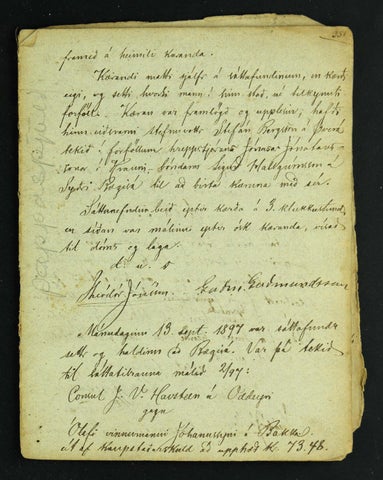 351
framið á heimili káranda.
Kærandi mætti sjálfr á sáttafundinum, en kærði
eigi, og setti hvorki mann í sinn stað, né tilkynnti
forföll. Kæran var framlögð og upplesin; hafði
hinn
stefnuvottr Stefán Bergsson á Þverá
tekið í forföllum hreppstjórans Jónasar Jónatans-
sonar í Hraun-
Hallgrímsson á
Syðri Bægisá til að birta kæruna með sér.
Sáttanefndin beið eptir kærða á 3. klukkustund,
en síðan var málinu eptir ósk kæranda, vísað
til dóms og laga.
d. u. s
Theódór Jónsson. Guðmundsson
Mánudaginn 13. sept. 1897 var sáttafundr
settr og haldinn að Bægisá. Var þá tekið
til sáttatilrauna málið 2/97:
Consul J. V. Havsteen á Oddeyri
gegn
Ólafi vinnumanni Jóhannssyni á Bakka
út af kaupstaðarskuld að upphæð kr. 73.48.